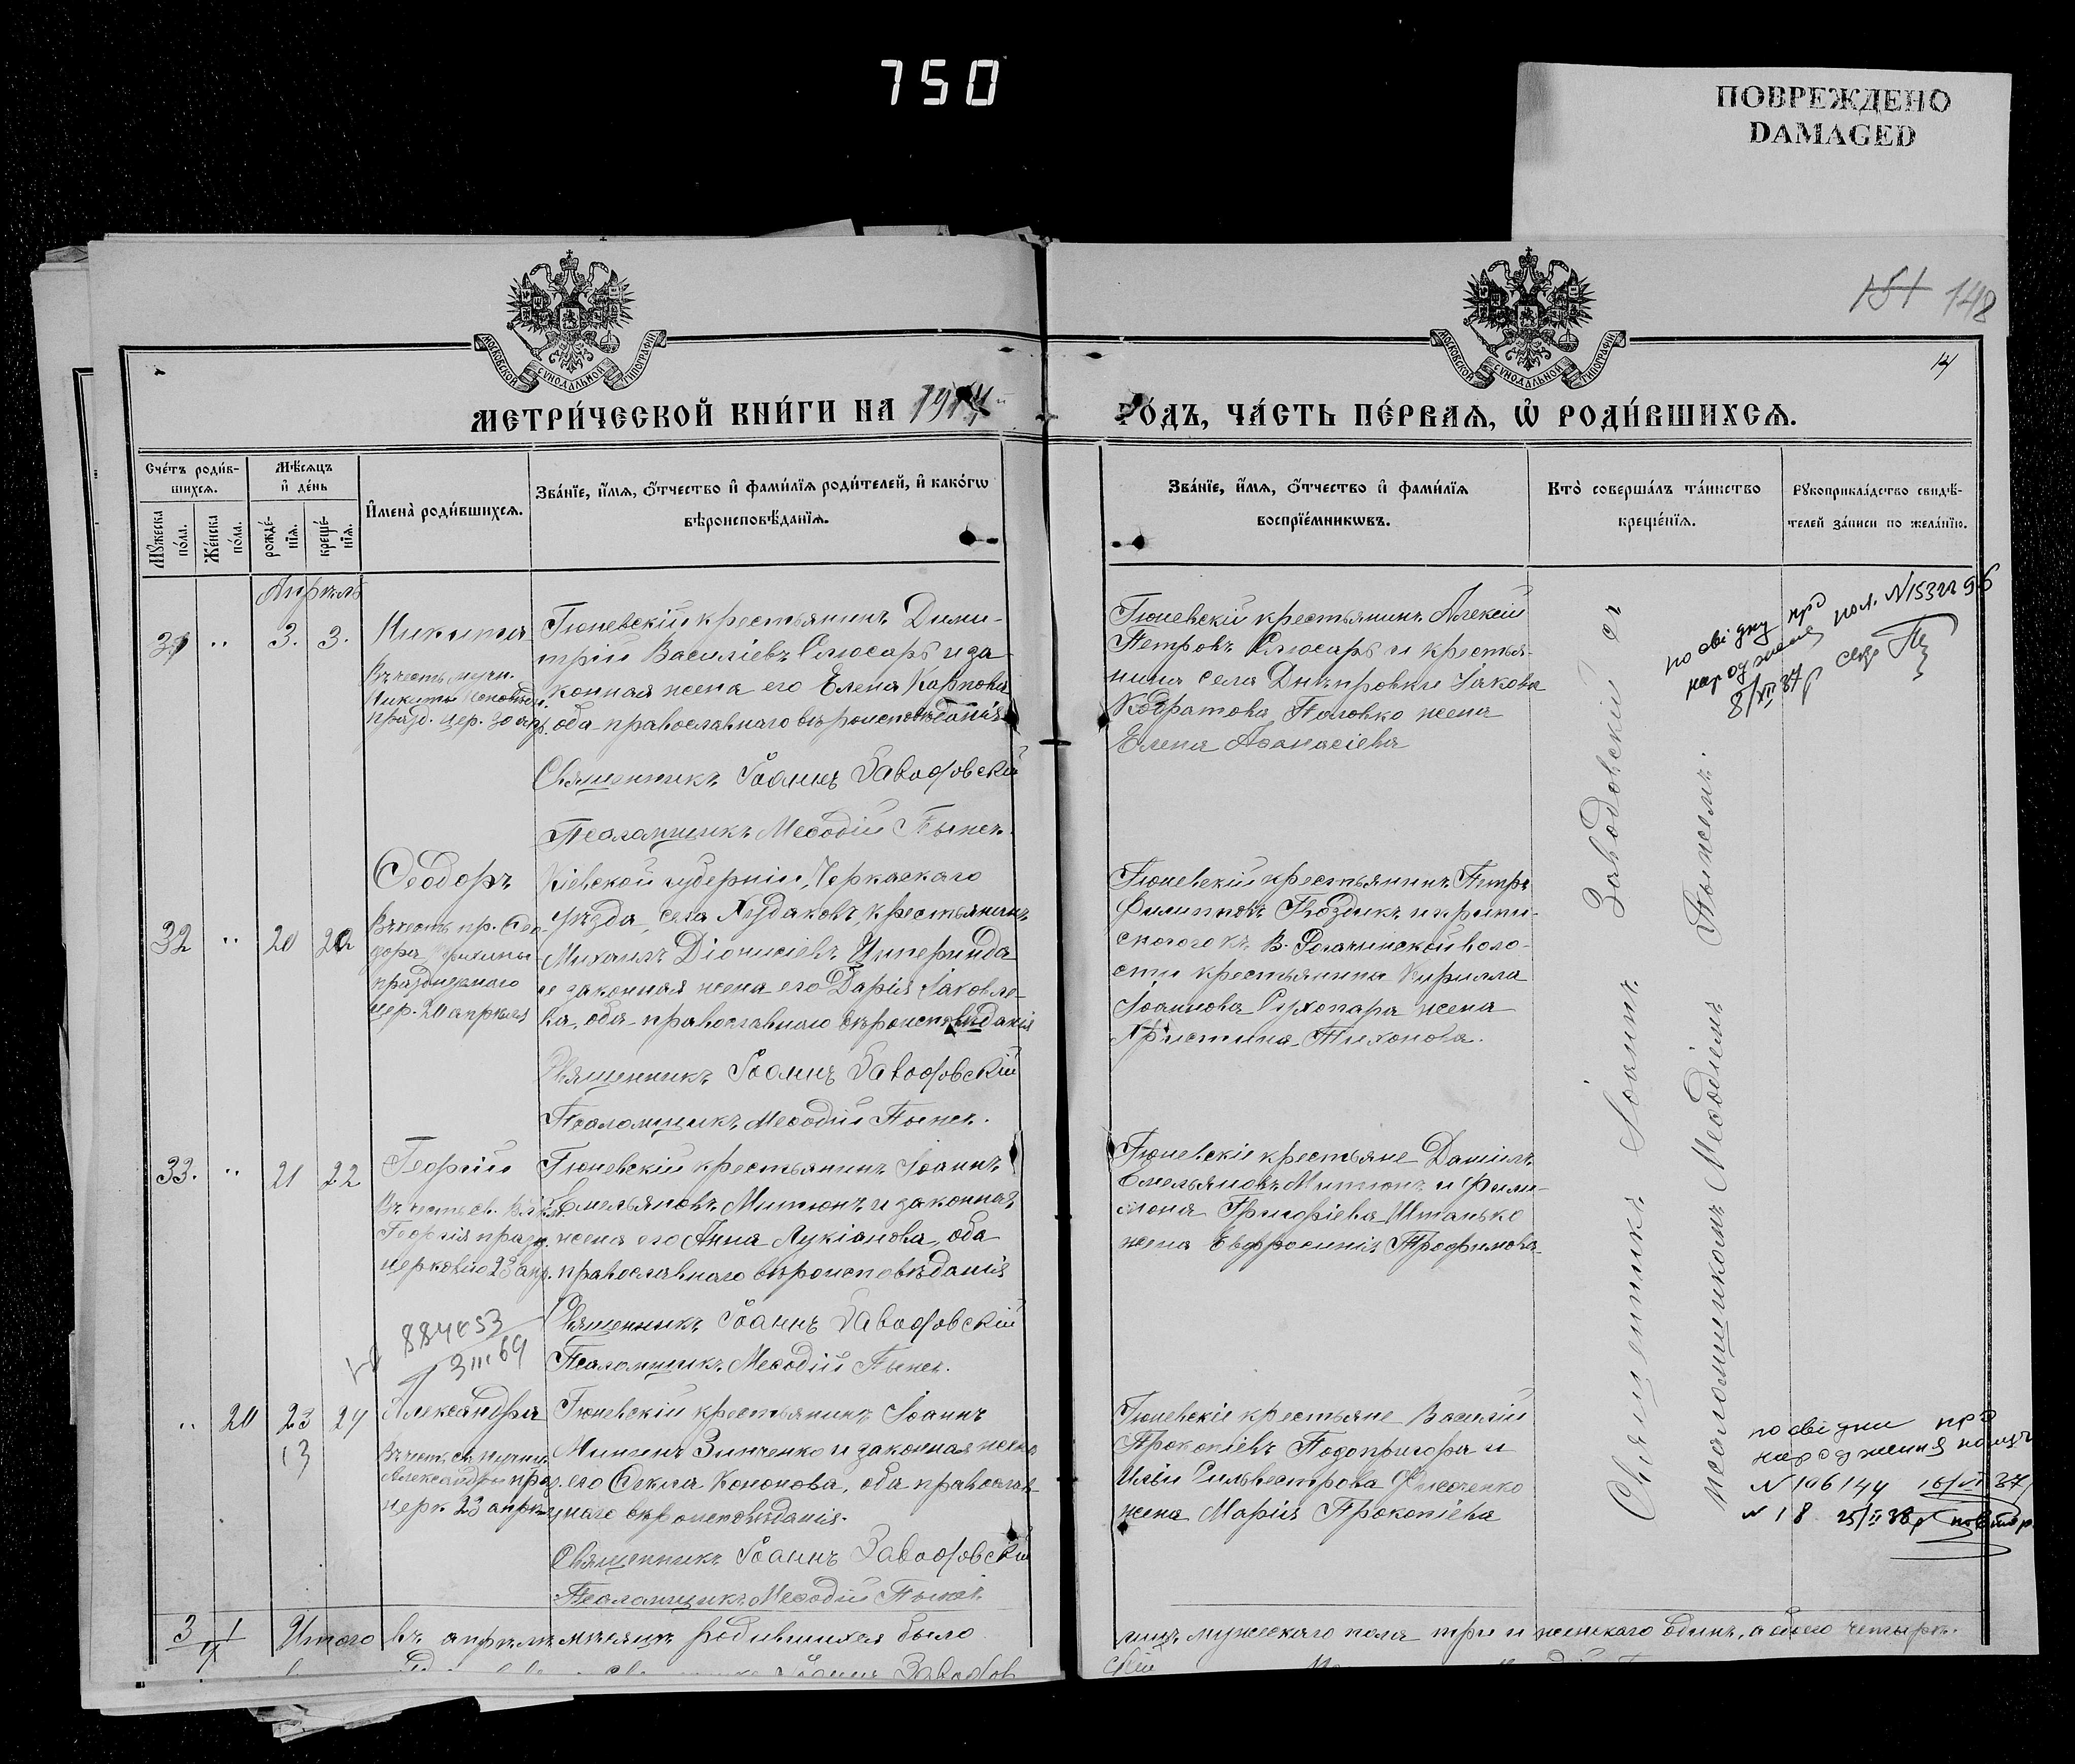 750
ПОВРЕЖДЕНО
DAMAGED
151 148
14
МОСКОВСКОЙ СѴНОДАЛЬНОЙ ТИПОГРАФІИ
МОСКОВСКОЙ СѴНОДАЛЬНОЙ ТИПОГРАФІИ
МЕТРИ́ЧЕСКОЙ КНИ́ГИ НА 1914
ГО́ДЪ, ЧА́СТЬ ПЕ́РВАѦ, Ѡ РОДИ́ВШИХСѦ.
Сче́тъ роди́в-
шихсѧ.
Мꙋжеска по́ла.
Же́нска по́ла.
Мѣ́сѧцъ
и҆ де́нь
рожде́-
нїѧ.
креще́-
нїѧ.
И҆мена̀ роди́вшихсѧ.
Зва́нїе, и҆́мѧ, ѻ҆́тчество и҆ фами́лїѧ роди́телей, и҆ како́гѡ
вѣроисповѣ́данїѧ.
Зва́нїе, и҆́мѧ, ѻ҆́тчество и҆ фами́лїѧ
воспрїе́мникѡвъ.
Кто̀ соверша́лъ та́инство
креще́нїѧ.
Рꙋкоприкла́дство свидѣ́-
телей за́писи по жела́нїю.
Апрѣль
31 " 3. 3.
Никита
Въ честь мучен.
Никиты Исповѣдн.
празд. цер. 30 апр.
Гюневскій крестьянинъ Дими-
трій Василіевъ Слюсарь и за-
конная жена его Елена Карпова
оба православнаго вѣроисповѣданія
Священникъ Іоаннъ Заводовскій
Псаломщикъ Меѳодій
Гюневскій крестьянинъ Алексій
Петровъ Слюсарь и крестья-
нина села Днѣпровки Іакова
Кодратова Половко жена
Елена Аѳанасіева
по свідку про
народження пол. N 1532296
8/XII 37 р
32 " 20 20
Ѳеодоръ
Въ честь пр. Ѳео-
дора
празднуемаго
цер. 20 апрѣля
Кіевской губерніи, Черкаскаго
уѣзда, села Худаковъ, крестьянинъ
Михаилъ Діонисіевъ
и законная жена его Дарія Іаковле-
ва, оба православнаго вѣроисповѣданія
Священникъ Іоаннъ Заводовскій
Псаломщикъ Меѳодій
Гюневскій крестьянинъ Петръ
Филипповъ Гвоздикъ и
В. Рогачинской воло-
сти крестьянина Кирилла
Іоаннова Сухопара жена
Христина Тихонова.
33. " 21 22
Георгій
Въ честь св. Вел.
Георгія празд.
церковію 23 апр.
884 053
3 III 69
Гюневскій крестьянинъ Іоаннъ
Емельяновъ Митюнъ и законная
жена его Анна Лукіанова, оба
православнаго вѣроисповѣданія
Священникъ Іоаннъ Заводовскій
Псаломщикъ Меѳодій
Гюневскіе крестьяне Даніилъ
Емельяновъ Митюнъ и Фили-
мона Григоріева Штанько
жена Евфросинія Трофимова
" 20 23 24
13
Александра
Въ честь св. мучен.
Александры праз.
церк. 23 апрѣля
Гюневскій крестьянинъ Іоаннъ
Мининъ Зинченко и законная жена
его Ѳекла Кононова, оба православ-
наго вѣроисповѣданія.
Священникъ Іоаннъ Заводовскій
Псаломщикъ Меѳодій
Гюневскіе крестьяне Василій
Прокопіевъ Подопригора и
Иліи Сильвестрова
жена Марія Прокопіева
Священникъ Іоаннъ Заводовскій съ
псаломщикомъ Меѳодіемъ
по свідки про
народження
N 106144 16/VI 37
N 18 25/II 38 р повтор.
3 1
4
Итого въ апрѣлѣ мѣсяцѣ родившихся было
лицъ мужескаго пола три и женскаго одинъ, а всего четыре.